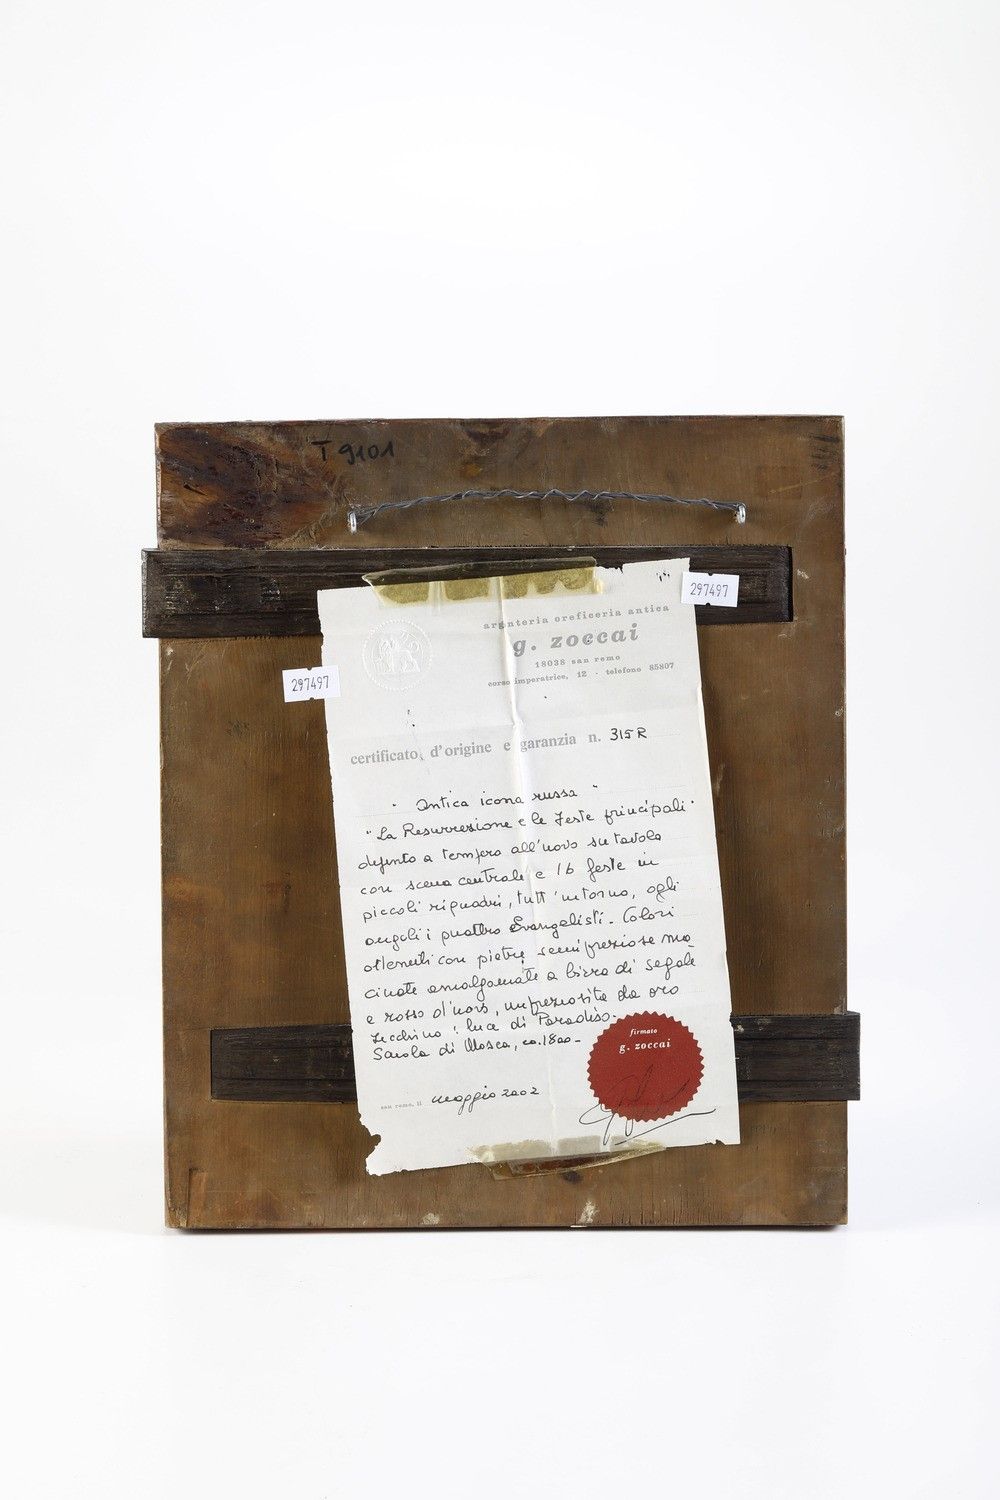 T 9101
297497
297497
argenteria oreficeria antica
g. zoccai
18038 san remo
corso imperatrice, 12 - telefono 85807
certificato d'origine e garanzia n. 315R
" Antica icona russa "
"La Resurrezione e le Feste principali"
dipinto a tempera all'uovo su tavola
con scena centrale e 16 feste in
piccoli riquadri, tutt'intorno, agli
angoli i quattro Evangelisti - Colori
ottenuti con pietre semipreziose ma-
cinate amalgamate a birra di segale
e rosso d'uovo, impreziosita da oro
zecchino: luce di Paradiso.
Scuola di Mosca, ca. 1800 -
san remo, il maggio 2002
firmato
g. zoccai